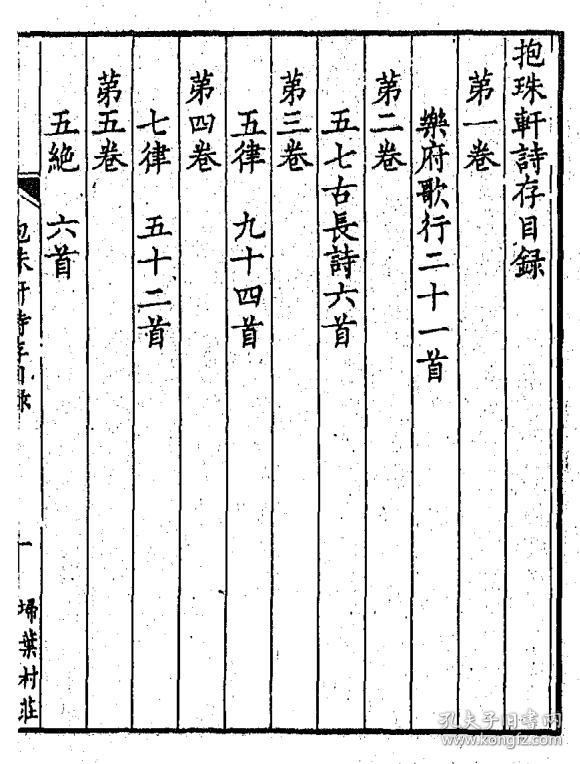 抱珠軒詩存目録
第一卷
樂府歌行二十一首
第二卷
五七古長詩六首
第三卷
五律 九十四首
第四卷
七律 五十二首
第五卷
五絶 六首
抱珠軒詩存目録 一 埽葉村莊
孔夫子旧书网
www.kongfz.com